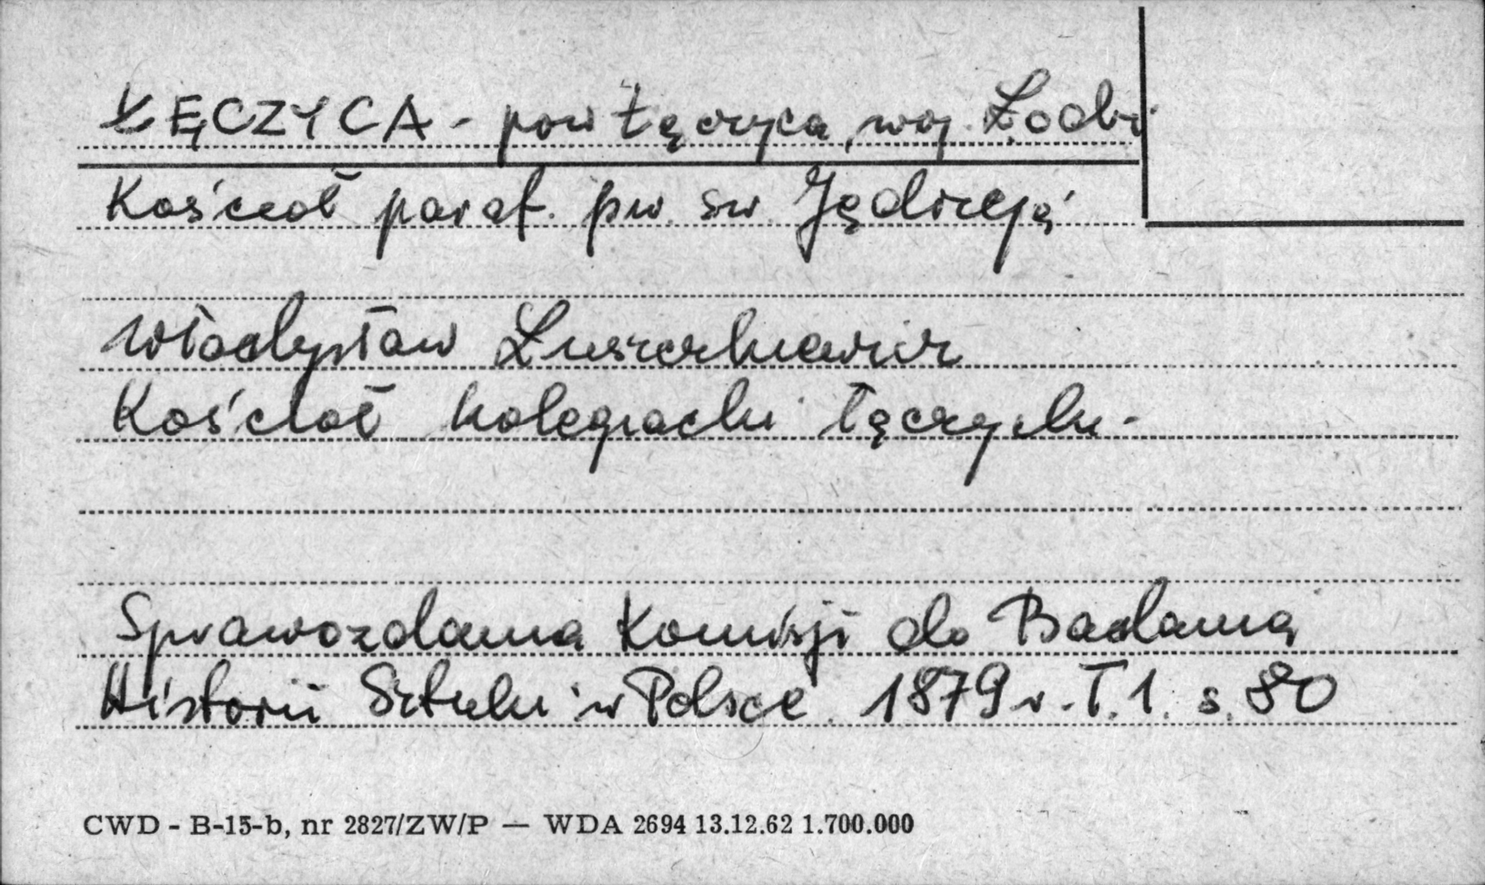 ŁĘCZYCA - pow Łęczyca, woj. Łódź
Kościół paraf. pw. św. Jędrzeja
Władysław Łuszczkiewicz
Kościół kolegiacki łęczycki.
Sprawozdania Komisji do Badania
Historii Sztuki w Polsce. 1879 r. T.1. s. 80
CWD - B-15-b, nr 2827/ZW/P — WDA 2694 13.12.62 1.700.000